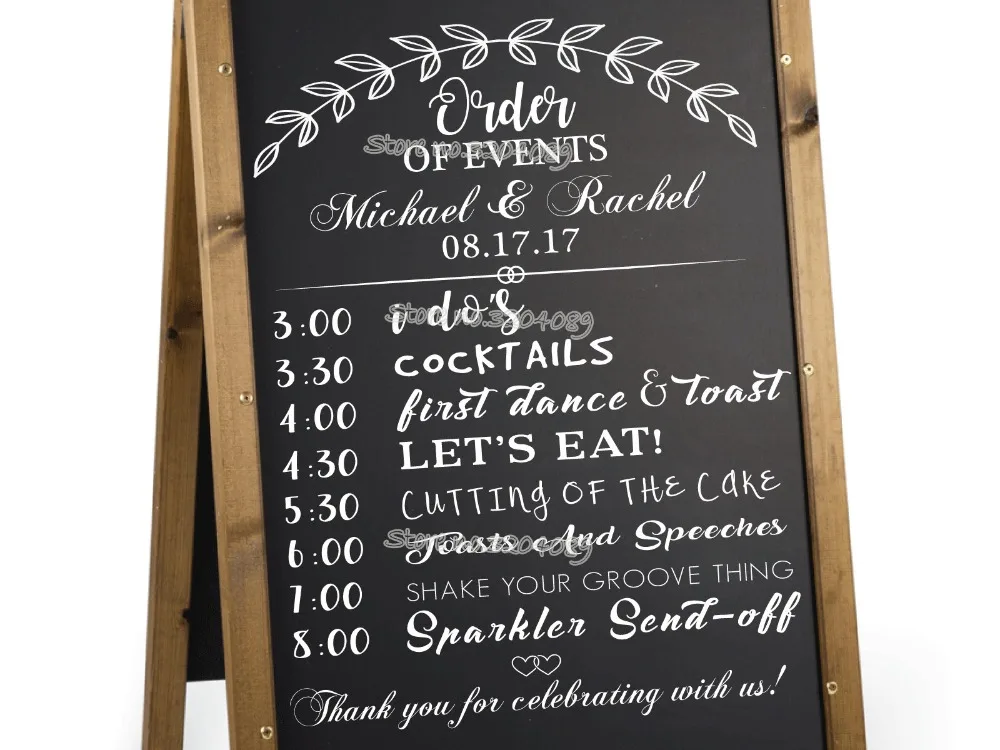 Order
OF EVENTS
Michael & Rachel
08.17.17
3:00 i do's
3:30 COCKTAILS
4:00 first dance & toast
4:30 LET'S EAT!
5:30 CUTTING OF THE CAKE
6:00 Toasts And Speeches
7:00 SHAKE YOUR GROOVE THING
8:00 Sparkler Send-off
Thank you for celebrating with us!
Store no.3304089
Store no.3304089
Store no.3304089